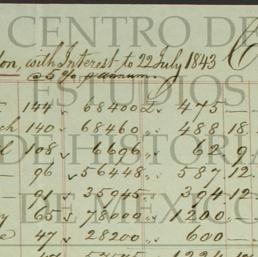 CENTRO DE
don, with Interest to 22 July 1843
@ 5 % p annum.
ESTUDIOS
144 " 68400 £ 475 —
ch 140 " 68460 " 488 18.
l 108 " 6696 " 62 9
DE HISTORIA
96 " 56448 " 587 12.
91 " 35945 " 394 12
DE MEXICO
y 65 " 78000 " 1200 . —
e 47 " 28200 " 600 —